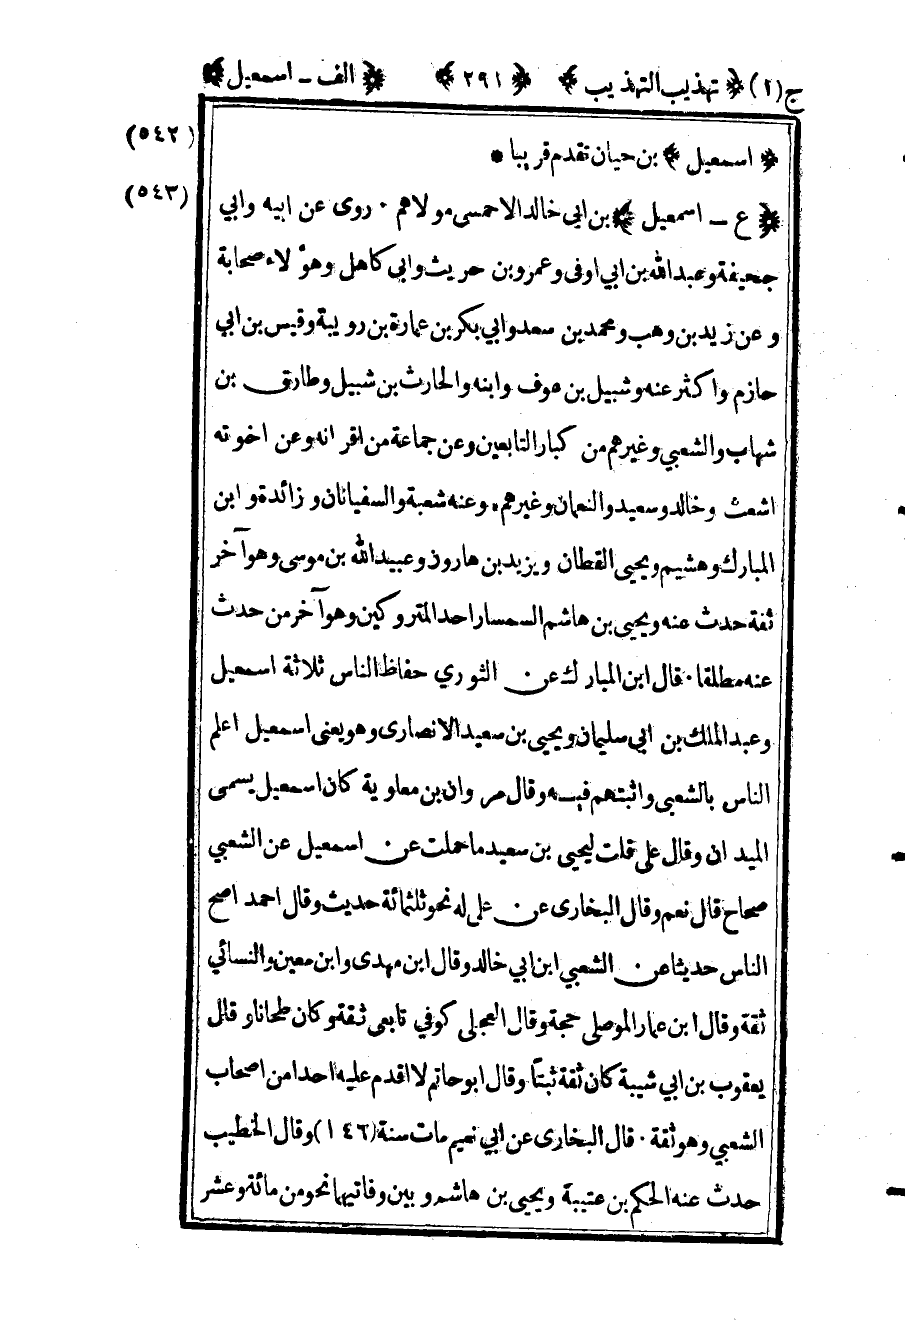 ج(١) ﴿ تهذيب التهذيب ﴾ ﴿ ٢٩١ ﴾ ﴿ الف - اسمعيل ﴾
﴿ اسمعيل ﴾ بن حيان تقدم قريبا * (٥٤٢)
﴿ ع - اسمعيل ﴾ بن ابي خالد الاحمسى مولاهم . روى عن ابيه وابي (٥٤٣)
جحيفة وعبد الله بن ابي اوفى وعمرو بن حريث وابى كاهل وهؤلاء صحابة
وعن زيد بن وهب ومحمد بن سعد وابي بكر بن عمارة بن رويبة وقيس بن ابي
حازم واكثر عنه وشبيل بن عوف وابنه والحارث بن شبيل وطارق بن
شهاب والشعبي وغيرهم من كبار التابعين وعن جماعة من اقرانه وعن اخوته
اشعث وخالد وسعيد والنعمان وغيرهم . وعنه شعبة والسفيانان وزائدة وابن
المبارك وهشيم ويحيى القطان ويزيد بن هارون وعبيد الله بن موسى وهو آخر
ثقة حدث عنه ويحيى بن هاشم السمسار احد المتروكين وهو آخر من حدث
عنه مطلقا . قال ابن المبارك عن الثوري حفاظ الناس ثلاثة اسمعيل
وعبد الملك بن ابى سليمان ويحيى بن سعيد الانصارى وهو يعنى اسمعيل اعلم
الناس بالشعبي واثبتهم فيه وقال مروان بن معاوية كان اسمعيل يسمى
الميدان وقال على قلت ليحيى بن سعيد ما حملت عن اسمعيل عن الشعبي
صحاح قال نعم وقال البخارى عن على له نحو ثلثمائة حديث وقال احمد اصح
الناس حديثا عن الشعبي ابن ابي خالد وقال ابن مهدى وابن معين والنسائي
ثقة وقال ابن عمار الموصلى حجة وقال العجلى كوفي تابعى ثقة وكان طحانا وقال
يعقوب بن ابي شيبة كان ثقة ثبتاً وقال ابو حاتم لا اقدم عليه احدا من اصحاب
الشعبي وهو ثقة . قال البخارى عن ابي نعيم مات سنة (١٤٦) وقال الخطيب
حدث عنه الحكم بن عتيبة ويحيى بن هاشم وبين وفاتيهما نحو من مائة وعشر